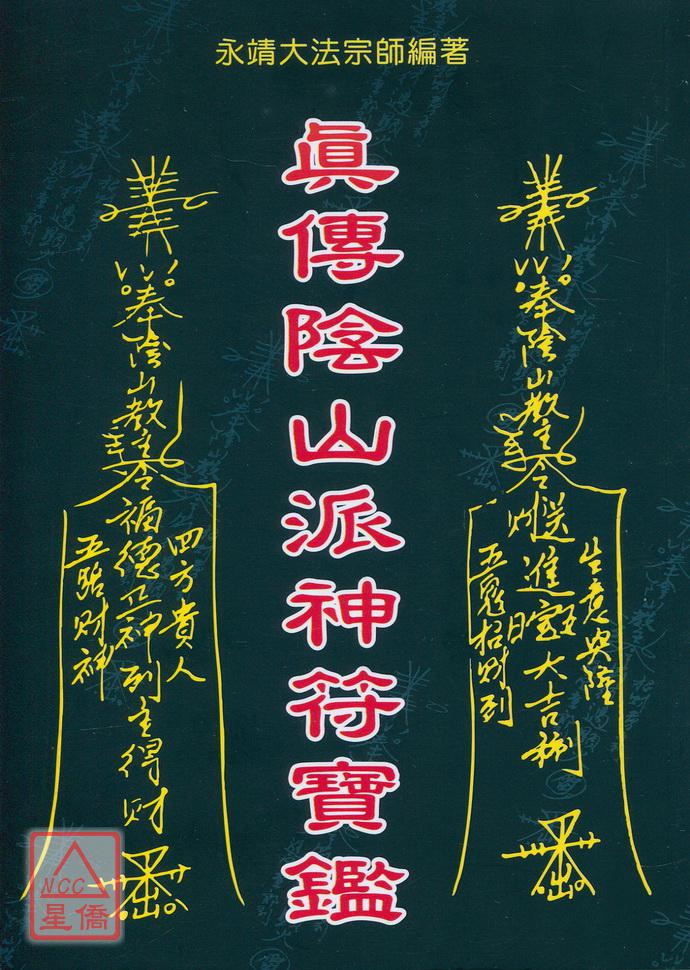 永靖大法宗師編著
眞傳陰山派神符寶鑑
奉陰山教主令
生意興隆
財送進寶大吉利
五鬼招財到
奉陰山教主令
四方貴人
福德正神到主得財
五路財神
NCC
星僑